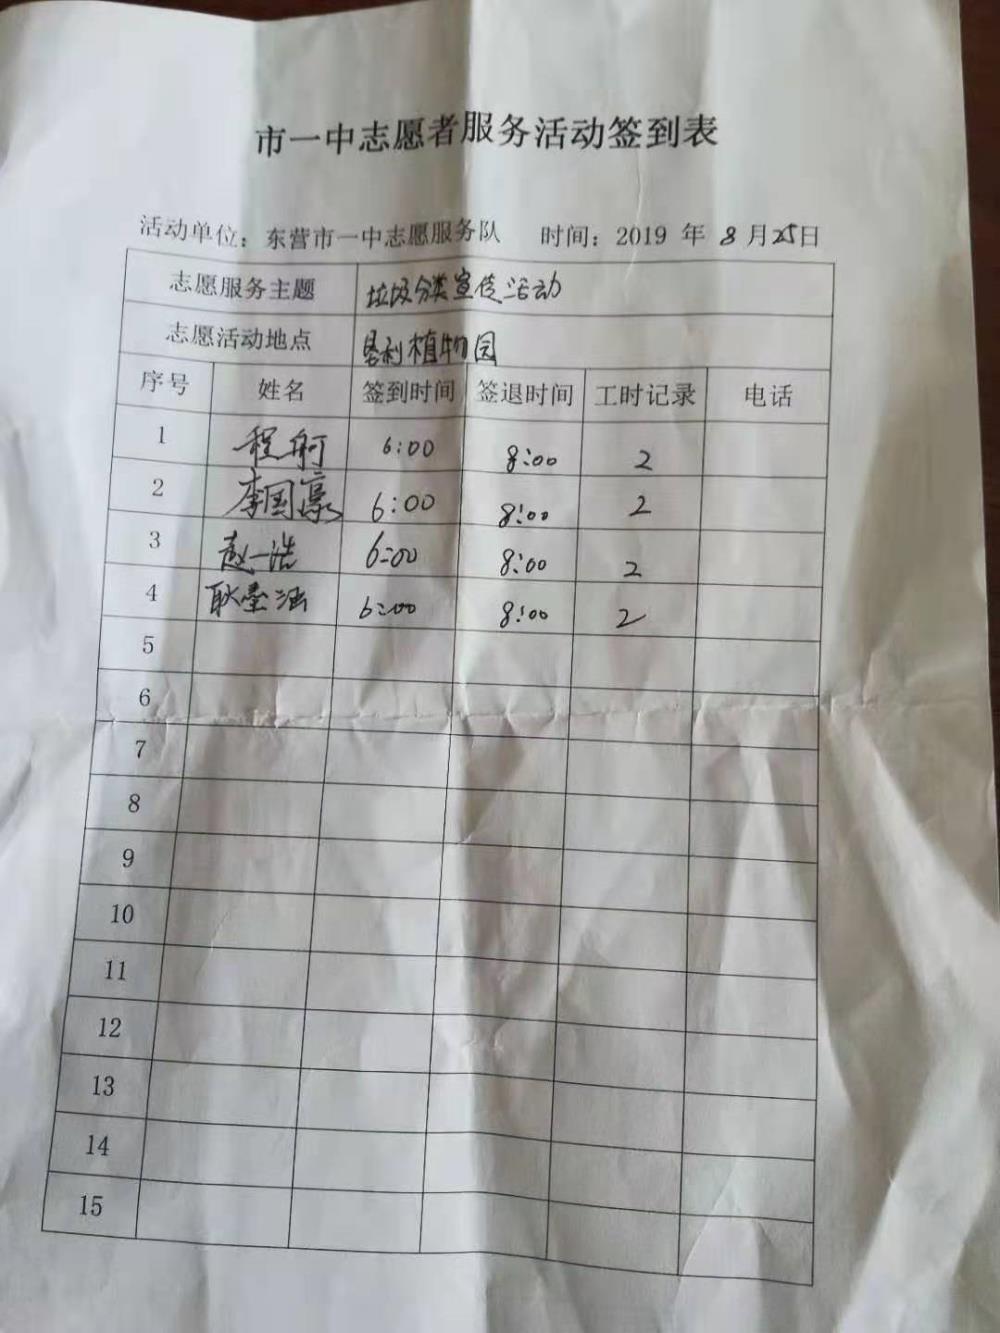 市一中志愿者服务活动签到表
活动单位：东营市一中志愿服务队 时间：2019 年 8 月25日
志愿服务主题 垃圾分类宣传活动
志愿活动地点 垦利植物园
序号 姓名 签到时间 签退时间 工时记录 电话
1 程舸 6:00 8:00 2
2 李国豪 6:00 8:00 2
3 赵一浩 6:00 8:00 2
4 耿 涵 6:00 8:00 2
5
6
7
8
9
10
11
12
13
14
15